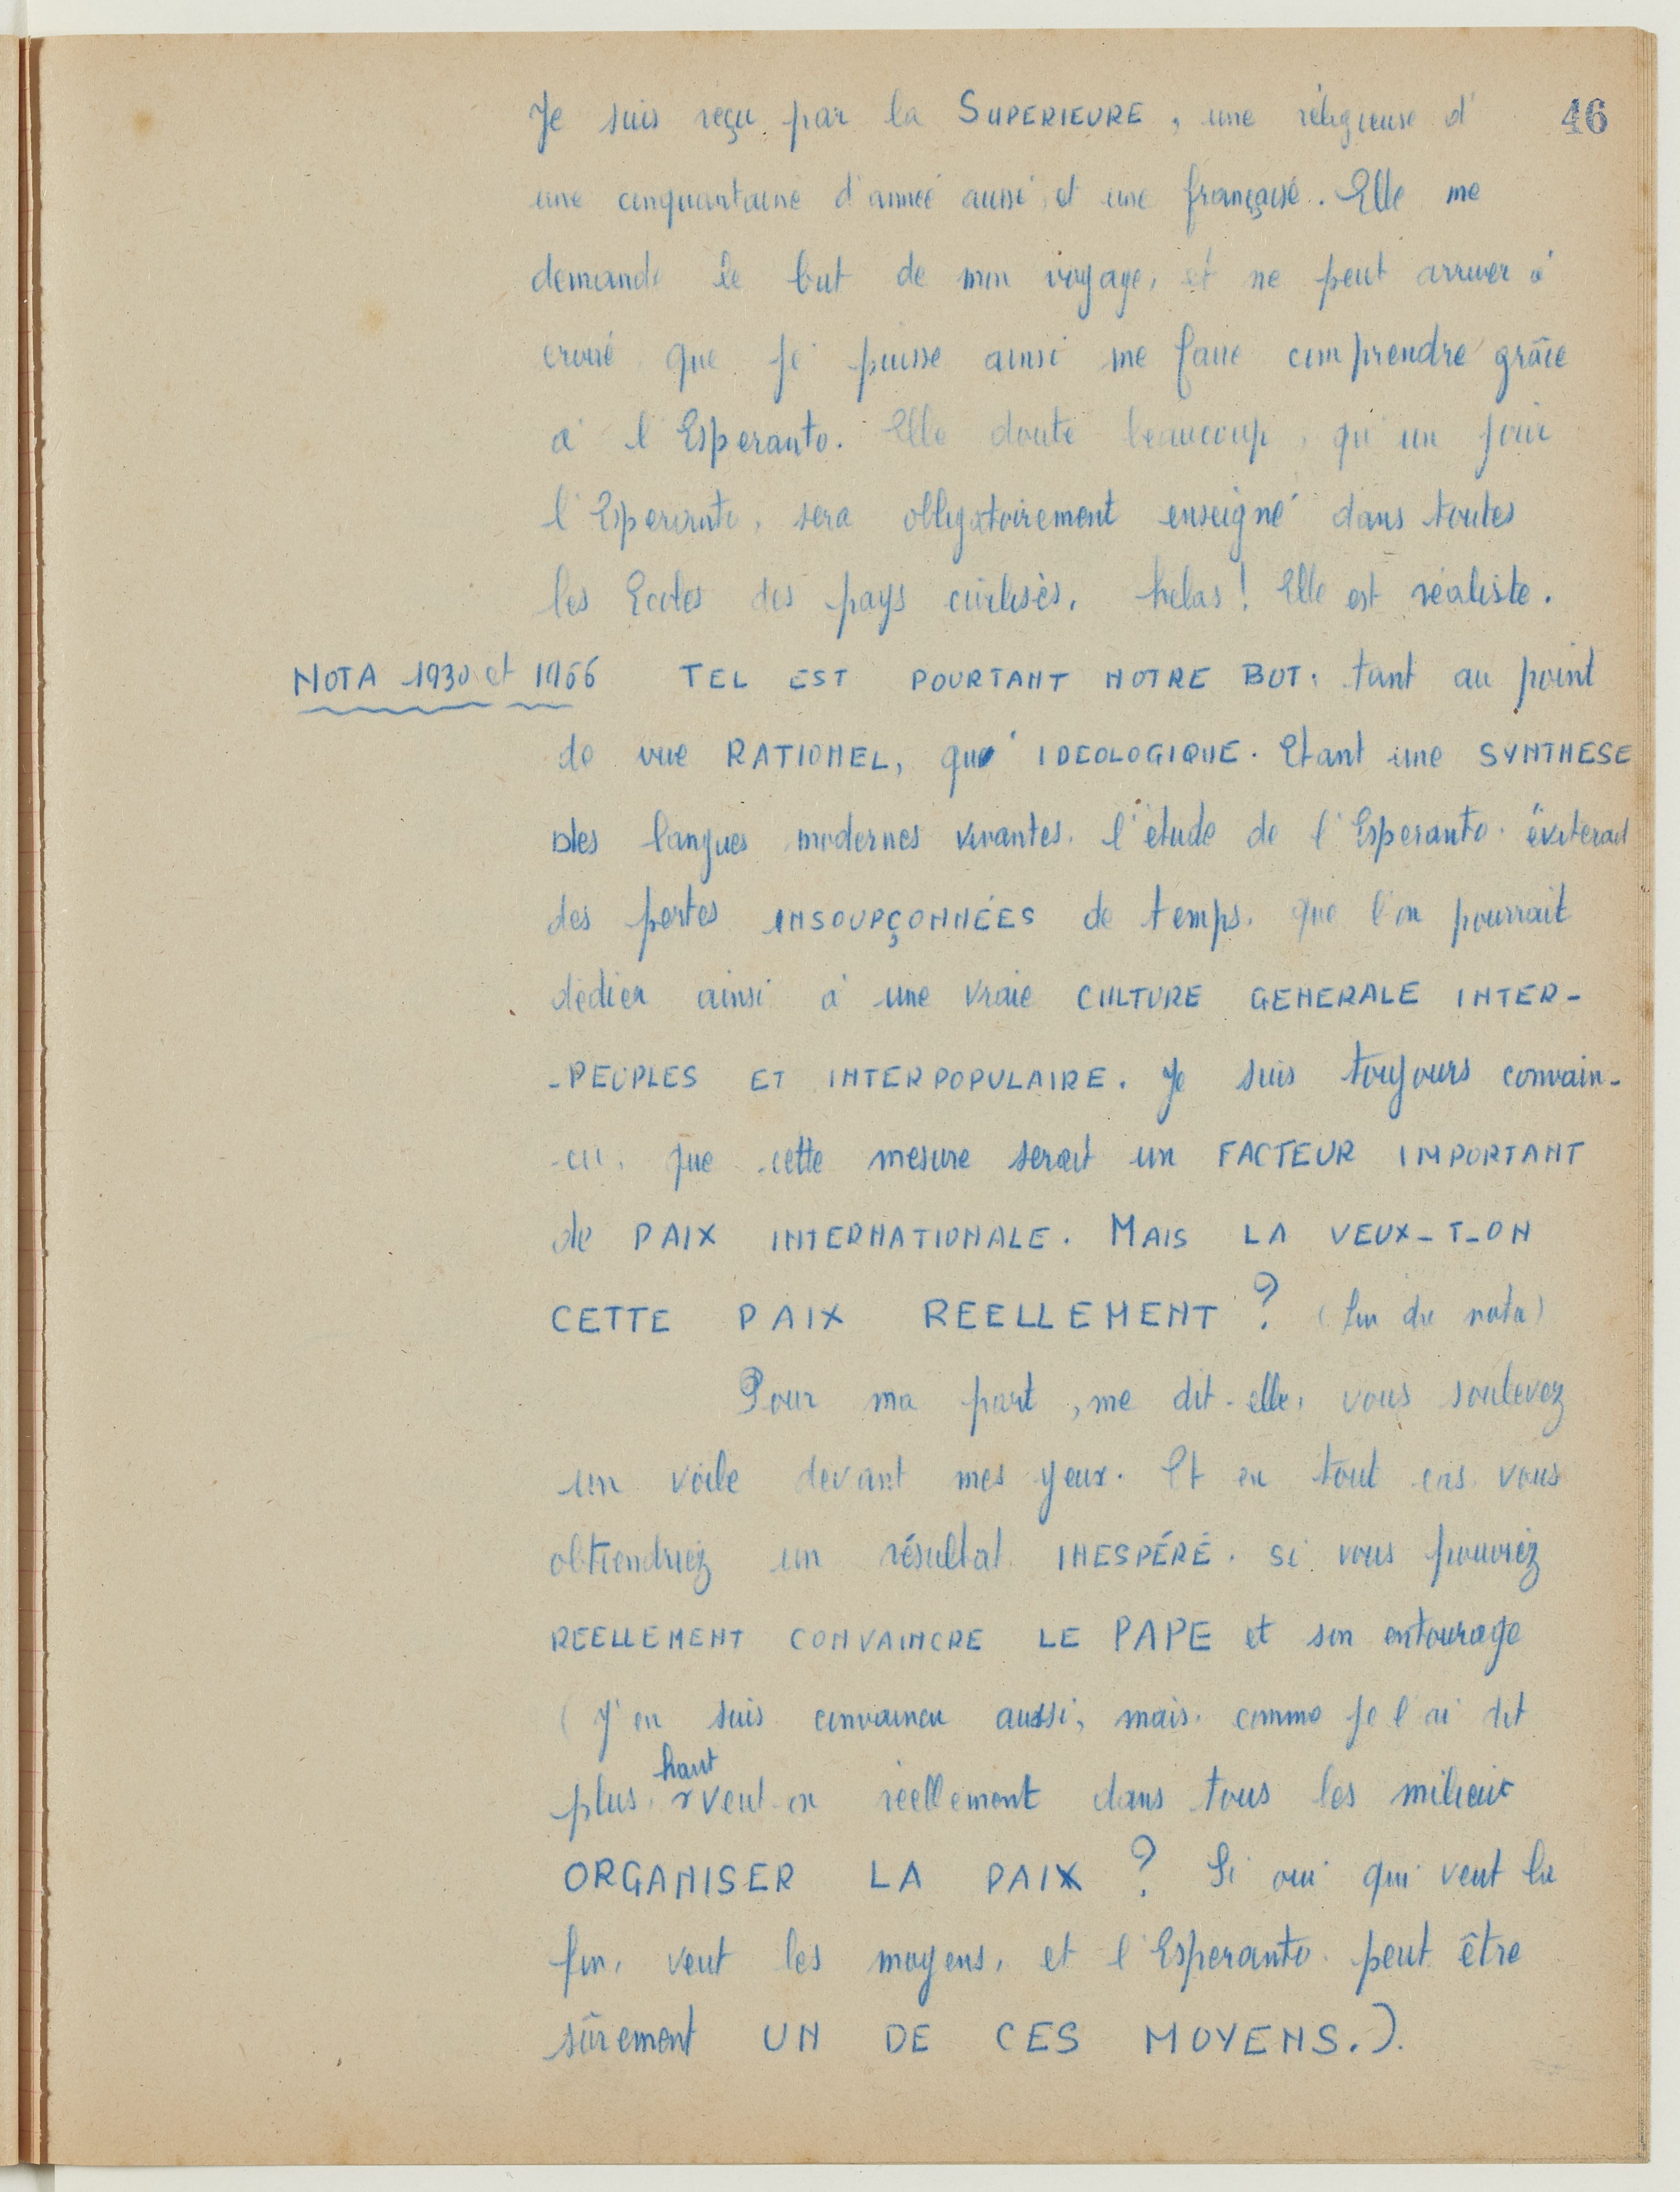 46
Je suis reçu par la SUPERIEURE, une réligieuse d'
une cinquantaine d'année aussi et une française. Elle me
demande le but de mon voyage, et ne peut arriver à
croire que je puisse ainsi me faire comprendre grâce
à l'Esperanto. Elle doute beaucoup, qu'un jour
l'Esperanto, sera obligatoirement enseigné dans toutes
les Ecoles des pays civilisès, helas! Elle est réaliste.
NOTA 1930 et 1966 TEL EST POURTANT NOTRE BUT, tant au point
de vue RATIONEL, qu' IDEOLOGIQUE. Etant une SYNTHESE
Des langues modernes vivantes, l'étude de l'Esperanto éviterait
des pertes INSOUPÇONNÉES de temps, que l'on pourrait
dédier ainsi à une vraie CULTURE GENERALE INTER-
-PEUPLES ET INTERPOPULAIRE. Je suis toujours convain-
-cu, que cette mesure serait un FACTEUR IMPORTANT
de PAIX INTERNATIONALE. MAIS LA VEUX-T-ON
CETTE PAIX REELLEMENT? (fin du nota)
Pour ma part, me dit-elle, vous soulevez
un voile devant mes yeux. Et en tout cas vous
obtiendriez un résultat INESPÉRÉ, si vous pouviez
REELLEMENT CONVAINCRE LE PAPE et son entourage
(J'en suis convaincu aussi, mais comme je l'ai dit
plus haut veut-on réellement dans tous les milieux
ORGANISER LA PAIX? Si oui qui veut la
fin, veut les moyens, et l'Esperanto peut être
sûrement UN DE CES MOYENS.).